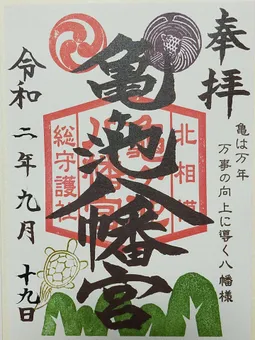 奉拝
亀は万年
万事の向上に導く八幡様
北相模
亀池八幡宮
総守護社
令和二年九月十九日